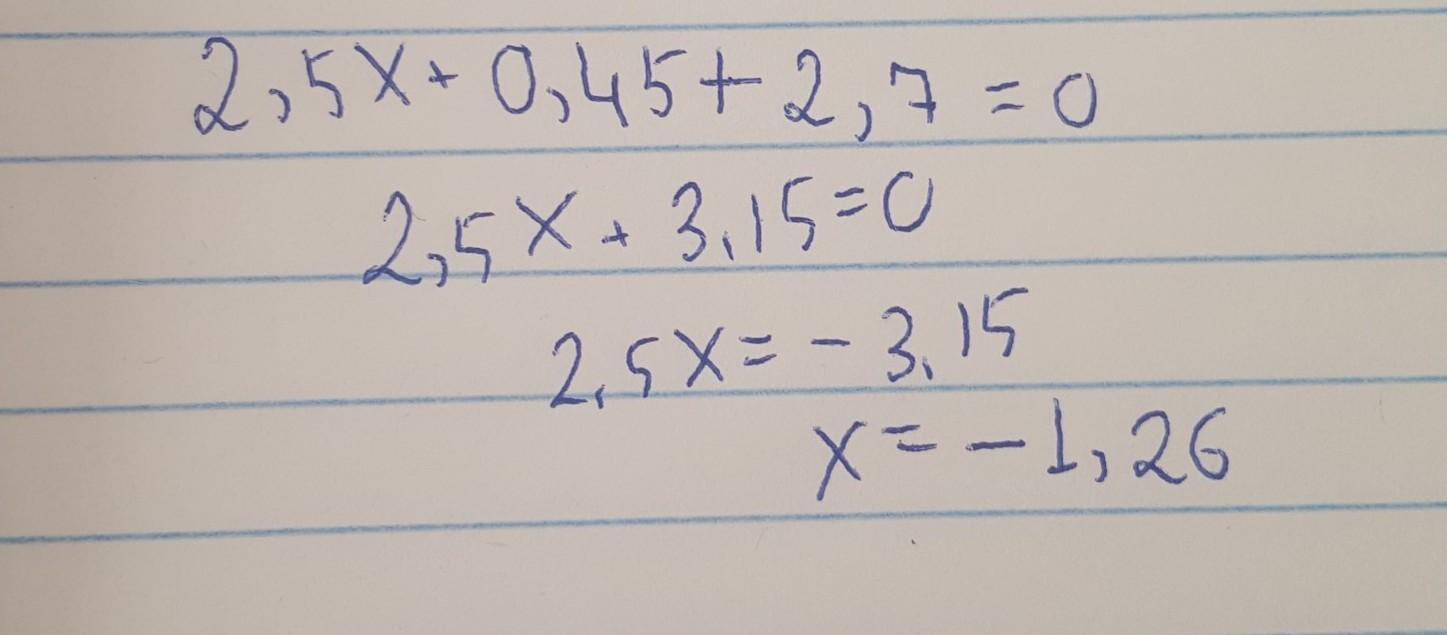 2,5x+ 0,45+2,7=0
2,5x+3,15=0
2,5x=-3,15
x=-1,26